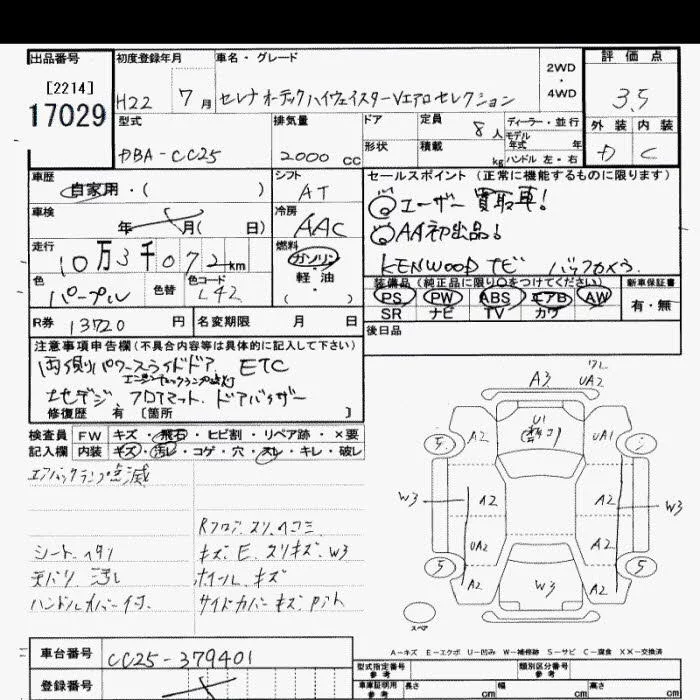 出品番号 初度登録年月 車名・グレード 2WD・4WD 評価点
[2214]
17029
H22 7月 セレナ オーテックハイウェイスターVエアロセレクション 3.5
型式 排気量 ドア 定員 8人 ディーラー・並行 モデル年式 年 外装 内装
DBA-CC25 2000cc 形状 積載 kg ハンドル 左・右 D C
車歴 自家用・( ) シフト AT セールスポイント(正常に機能するものに限ります)
車検 年 月( 日) 冷房 AAC ◎ユーザー買取車!
◎AA初出品!
走行 10万3千072km 燃料 ガソリン・軽油・( ) KENWOOD TV バックカメラ
色 パープル 色替 色コード L42
装備品(純正品に限り○をつけてください) 新車保証書
PS PW ABS エアB AW 有・無
SR ナビ TV カワ
R券 13720円 名変期限 月 日 後日品
注意事項申告欄(不具合内容等は具体的に記入して下さい)
両側パワースライドドア、ETC
エンジンチェックランプ点灯
地デジ、フロアマット、ドアバイザー
修復歴 有 [箇所 ]
検査員 FW キズ・飛石・ヒビ割・リペア跡・×要
記入欄 内装 キズ・汚レ・コゲ・穴・スレ・キレ・破レ
エアバックランプ点滅
Rフロア、スリ、ヘコミ
シート、ヘタリ キズ、E、スリキズ、W3
天バリ 汚レ ホイール、キズ
ハンドルカバー付、 サイドカバー キズ
A3 ワレ UA2
U1
5 A2 UA1
W3 A2 A2 W3
UA2 A2
5 A2 W3 A2 5
スペア
A-キズ E-エクボ U-凹み W-補修跡 S-サビ C-腐食 XX-交換済
車台番号 CC25-379401
型式指定番号 参考 類別区分番号 参考
登録番号
車庫証明用 参考 長さ cm 幅 cm 高さ cm